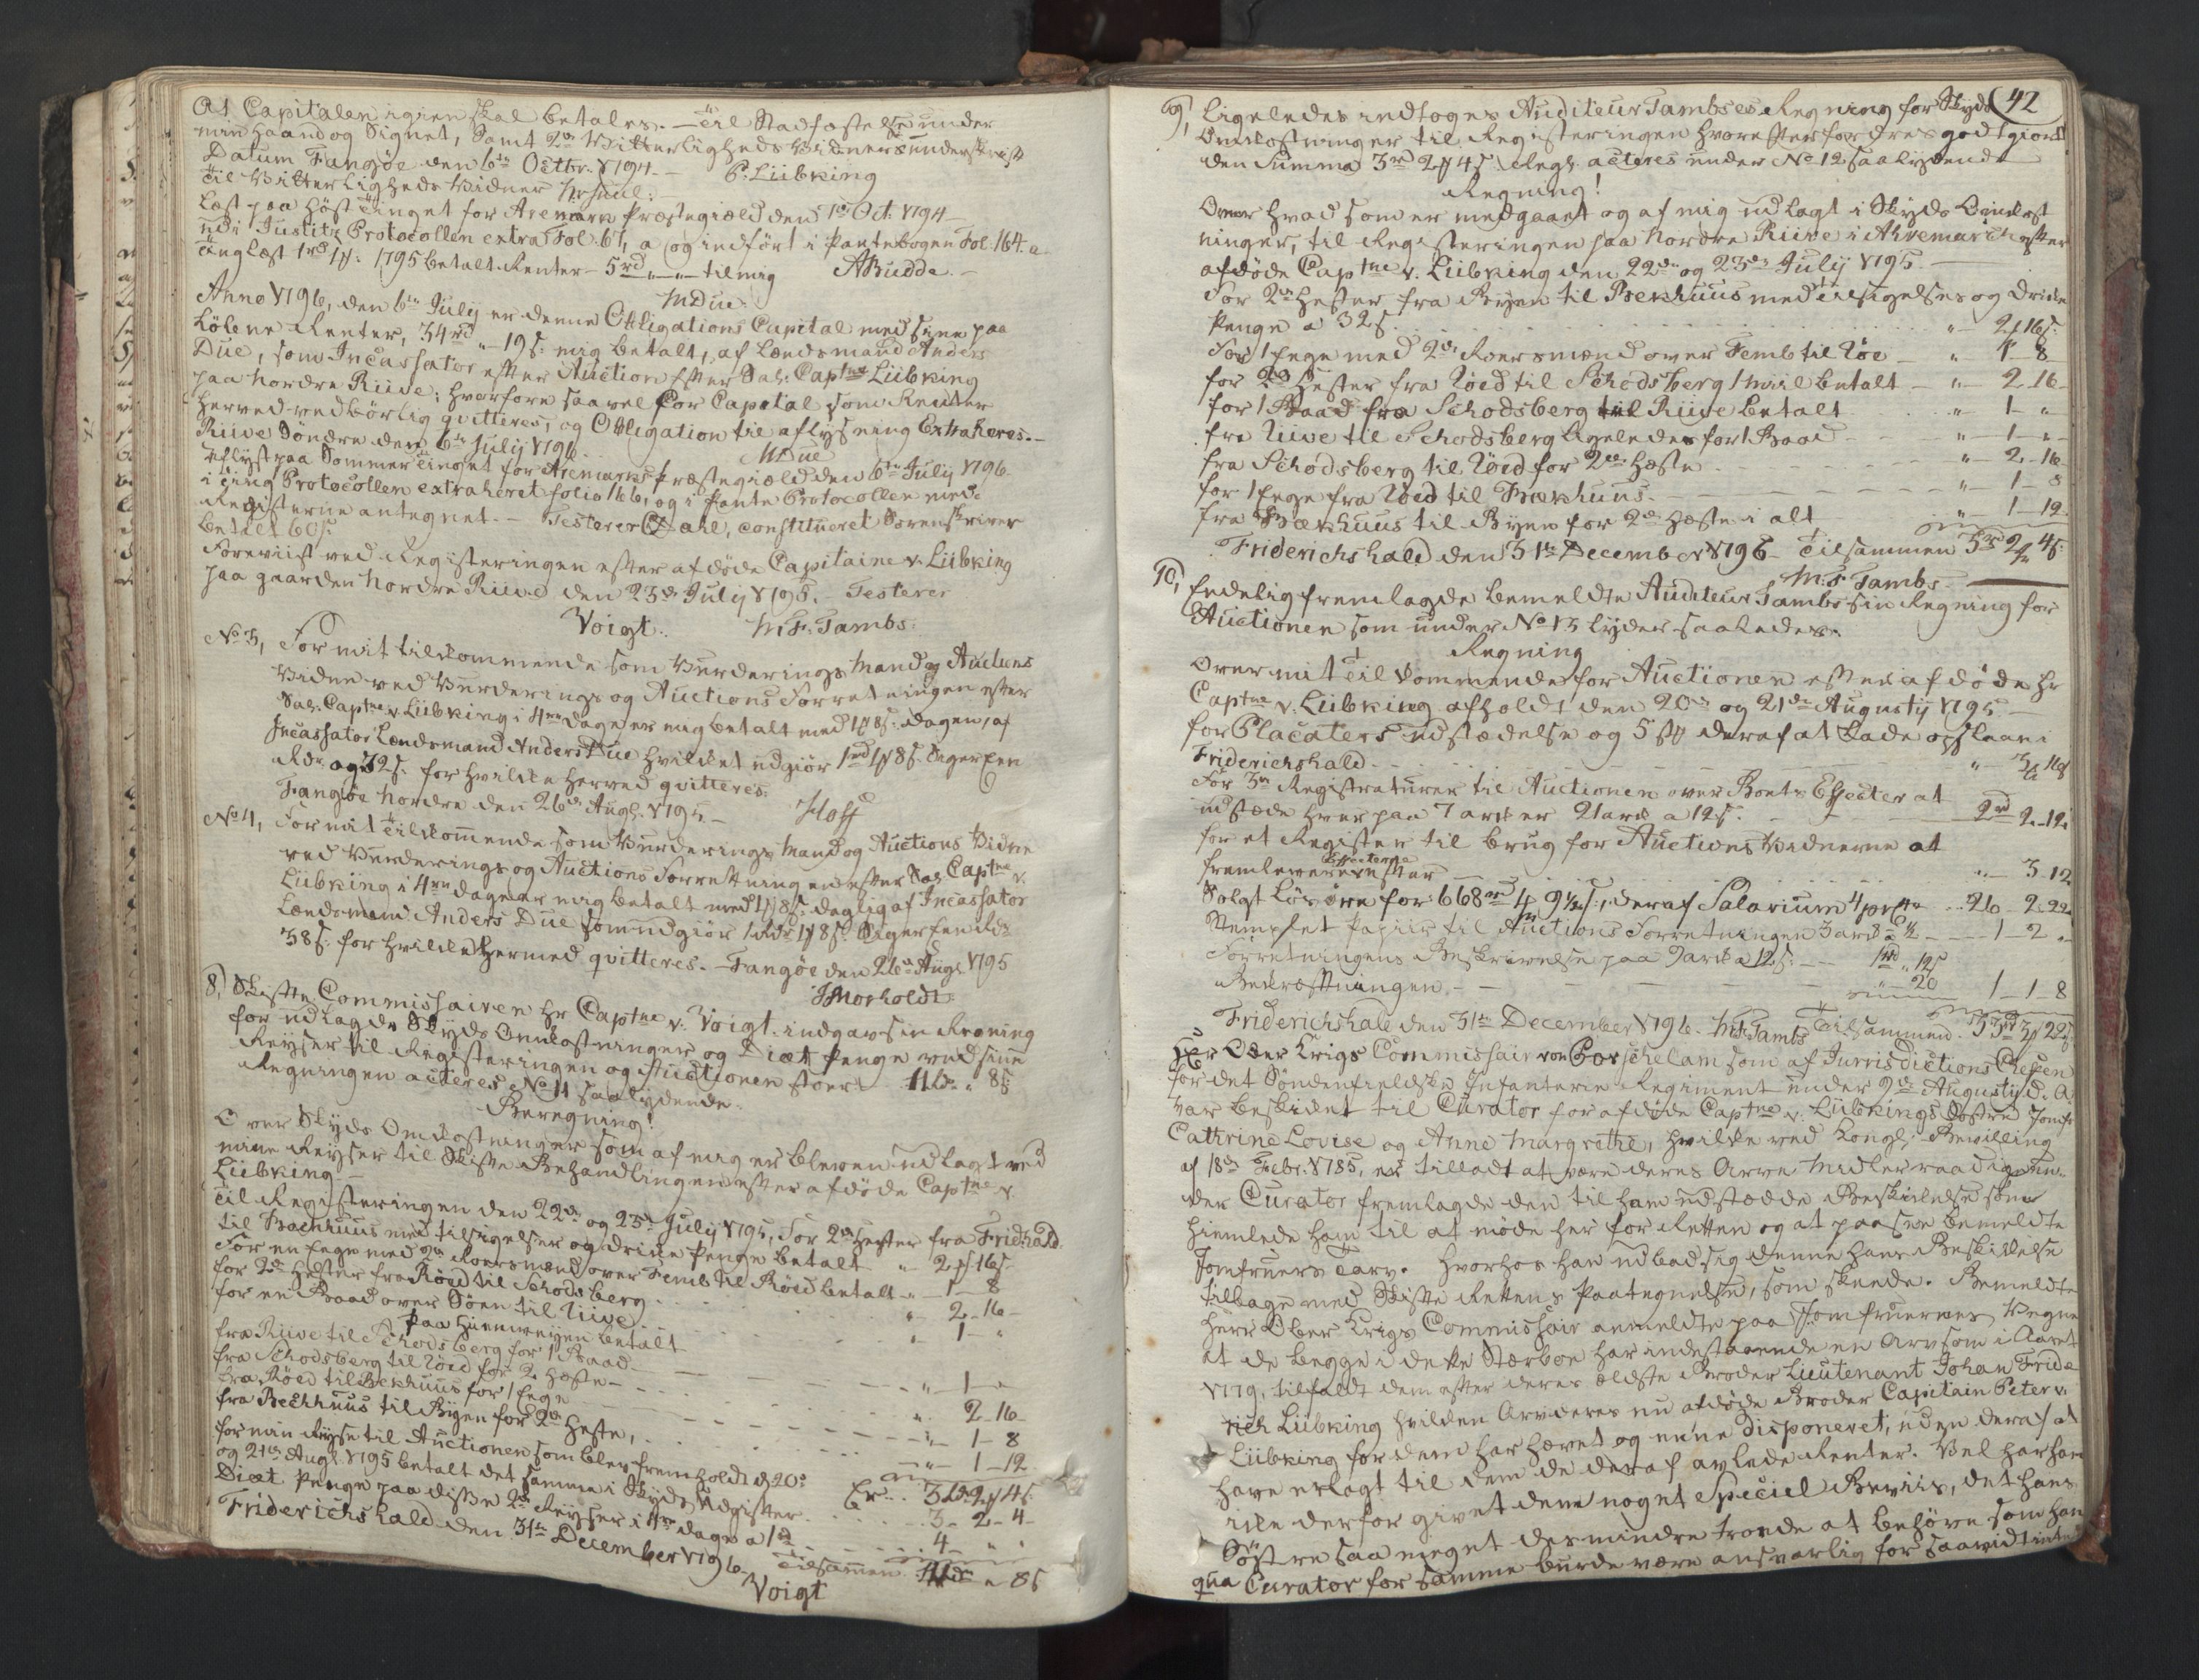 At Capitalen igien skal betales. — Til Stadfæstelse under
min Haand og Signet, Samt 2de Vitterligheds Vidners underskrift
Datum Tangöe den 6te Octbr. 1794 — P. Lübking
Til Vitterligheds Vidner
Læst paa Höst Tinget for Aremark Præstegield den 1te Oct. 1794 —
udi Justits Protocollen extra Fol: 67, a og indfört i Pantebogen Fol: 164. a
Tinglæst 1rd 1ƒ: 1795 betalt Renter — 5rd „ — „ — til mig ABudde. —
MDue.
Anno 1796, den 6te July er denne Obligations Capital med sine paa
Löbene Renter, 34rd „ — 19 s: mig betalt, af Lændsmand Anders
Due, som Incassator efter Auction efter Sal: Captne Lübking
paa Nordre Riive; hvorfore saavel for Capital som Renter
herved vedbörlig qvitteres, og Obligation til aflysning Extraheres. —
Riive Söndre den 6te July 1796. MDue
Aflyst paa Sommer Tinget for Aremarks Præstegield den 6te July 1796.
i ting Protocollen extraheret folio 166, og i Pante Protocollen med
Registerne antegnet. — Testerer Dahl, constitueret Sorenskriver
betalt 60 s.
Foreviist ved Registeringen efter afdöde Capitaine v. Lübking
paa gaarden Nordre Riive den 23de July 1795. — Testerer
Voigt. M.F. Tambs.
No 3, For mit tilkommende som Vurderings Mand og Auctions
Vidne ved Vurderings og Auctions Forretningen efter
Sal: Captne v. Lübking i 4re dage er mig betalt med 1ƒ 8 s: dagen, af
Incassator Lændsmand Anders Due hvilket udgiör 1rd 1ƒ 8 s. Siger Een
Rdr og 32 s. for hvilke herved qvitteres.
Tangöe Nordre den 26de Augl. 1795 — Hoff
No 4, For mit Tilkommende som Vurderings Mand og Auctions Vidne
ved Vurderings og Auctions Forretningen efter Sal Captne v.
Lübking i 4re dage er mig betalt med 1ƒ 8 s: daglig af Incassator
Lændsmand Anders Due som udgiör 1 Rdr 1ƒ 8 s. Siger Een Rdr
38 s. for hvilke Hermed qvitteres. — Tangöe den 26de Augl. 1795
8, Skifte Commissairen Hr Captne v. Voigt. indgav sin Regning
for udlagde Skyds Omkostninger og Diæt Penge ved sine
Reyser til Registeringen og Auctionen stoer 11 Rdr „ 8 s.
Regningen acteres No 11 saalydende.
Beregning!
Over Skyds Omkostninger som af mig er bleven udlagt ved
mine Reyser til Skifte Behandlingen efter afdöde Captne v.
Lübking —
Til Registeringen den 22de og 23de July 1795, For 2de Hester fra Fridhald.
til Backhuus med tilsigelser og drikke Penge betalt „ 2ƒ 16 s
For en Fege med 2de Roersmænd over Femb til Röed betalt — „ 1 — 8
for 2de Hester fra Röed til Schodsberg. „ 2 — 16 —
for en Baad over Söen til Riive „ 1 — „
Paa Hiemveyen betalt
fra Riive til Schodsberg for 1 Baad — „ 1 — „
fra Schodsberg til Röed for 2 Hæste — „ 2 — 16 —
fra Röed til Bekhuus for 1 Fege „ 1 — 8
fra Beckhuus til Byen for 2de Heste, „ 1 — 12
for min Reyse til Auctionen som blev fremholdt d 20de Er... 3 Rd 2ƒ 4 s
og 21de Augl. 1795 betalt det samme i Skyds Udgifter 3 — 2 — 4 —
Diæt Penge paa disse 2de Reyser i 4re dage a 1rd 4 — „ „
Friderichshald den 31te December 1796. Tilsammen 11 Rdr „ 8 s
Voigt
42
9, Ligeledes indtoges Auditeur Tambses Regning for Skyds
Omkostninger til Registeringen hvorefter fordres godtgiort
den Summa 3rd 2ƒ 4 s. Regl. acteres under No 12 saalydende
Regning!
Over hvad som er medgaaet og af mig udlagt i Skyds Omkost
ninger, til Registeringen paa Nordre Riive i Ahremarch efter
afdöde Captne v. Lübking den 22de og 23de July 1795.
For 2de Hester fra Byen til Bekhuus med tilsigelses og drikke
Penge a 32 s. „ — 2ƒ 16 s:
For 1 Fege med 2de Roersmænd over Femb til Röe — „ 1 — 8
for 2de Hester fra Röed til Schodsberg 1 Miil betalt — „ — 2 — 16 —
for 1 Baad fra Schodsberg til Riive betalt „ — 1 — „
fra Riive til Schodsberg ligeledes for 1 Baad — „ — 1 — „ —
fra Schodsberg til Röed for 2de Hæste „ — 2 — 16 —
for 1 Fege fra Röed til Bækhuus. — „ — 1 — 8
fra Bækhuus til Byen for 2de Hæste i alt „ — 1 — 12
Friderichshald den 31te December 1796 — Tilsammen 3rd 2ƒ 4 s.
M.F. Tambs —
10, Endelig fremlagde bemeldte Auditeur Tambs sin Regning for
Auctionen som under No 13 lyder saaledes.
Regning
Over mit Tilkommende for Auctionen efter afdöde Hr
Captne v. Lübking afholdt den 20de og 21de Augusty 1795 —
for Placaters udstædelse og 5 st deraf at lade opslaae i
Friderichshald „ 3ƒ 18
For 3de Registraturer til Auctionen over Boets Effecter at
udstæde hver paa 7 ark er 21 ark a 12 s. 2rd 2 — 12
for et Register til brug for Auctions Vidnerne at
fremlevere Effecterne efter „ — 3 — 12
Solgt Lösöre for: 668rd 1ƒ 9½ s:, deraf Salarium 4 pr Ct „ 26 — 2 — 22
Stemplet Papiir til Auctions Forretningen 3 ark a ½ — 1 — 2 „
Forretningens Beskrivelse paa 9 ark a 12 s. — 1rd „ 12 s
Bekræftningen — „ — 20 1 — 1 — 8
Friderichshald den 31te December 1796. M.F. Tambs Tilsammen 33rd 3ƒ 22 s
Hr Ober Krigs Commissair von som af Jurrisdictions Chefen
for det Söndenfieldske Infanterie Regiment under 9de Augusty d. A.
var beskikket til Curator for afdöde Captne v. Lübkings Söstre Jomfr
Cathrine Lovise og Anne Margrethe, hvilke ved Kongl: Bevilling
af 18de Febr. 1785, er tilladt at være deres Arve Midler raadige un-
der Curator fremlagde den til ham udstædde Beskikkelse som
hiemlede ham til at möde her for Retten og at paasee bemeldte
Jomfruers Tarv. Hvorhos han udbad sig denne hans Beskikkelse
tilbage med Skifte Rettens Paategnelse, som skeede. Bemeldte
Herr Ober Krigs Commissair anmeldte paa Jomfruernes Vegne
at de begge i dette Stærboe har indestaaende en Arv som i Aaret
1779, tilfaldt dem efter deres ældste Broder Lieutenant Johan Fride
rich Lübking hvilken Arv deres nu afdöde Broder Capitain Peter v.
Lübking for dem har hævet og ene disponeret, uden deraf at
have erlagt til dem de deraf avlede Renter. Vel har han
ikke derfor givet dem noget Speciel Beviis, det hans
Söstre saa meget desmindre troede at behöve som han
qua Curator for samme burde være ansvarlig for saavidt